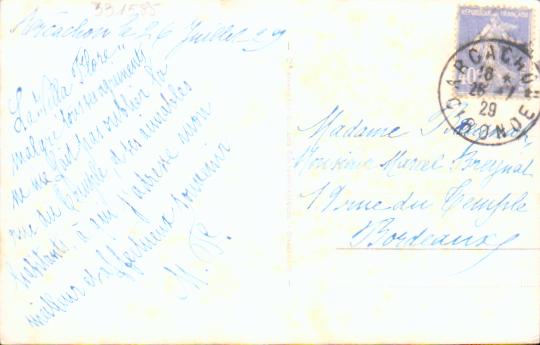 331585
Arcachon le 26 Juillet 29
La Villa "Flore"
malgré tous ses agréments
ne me fait pas oublier la
rue du Temple et ses aimables
habitants à qui j'adresse mon
meilleur et affectueux souvenir
M. P.
RÉPUBLIQUE FRANÇAISE
ARCACHON
18
26 - 7
29
GIRONDE
Madame
Monsieur Marcel
19 rue du Temple
Bordeaux